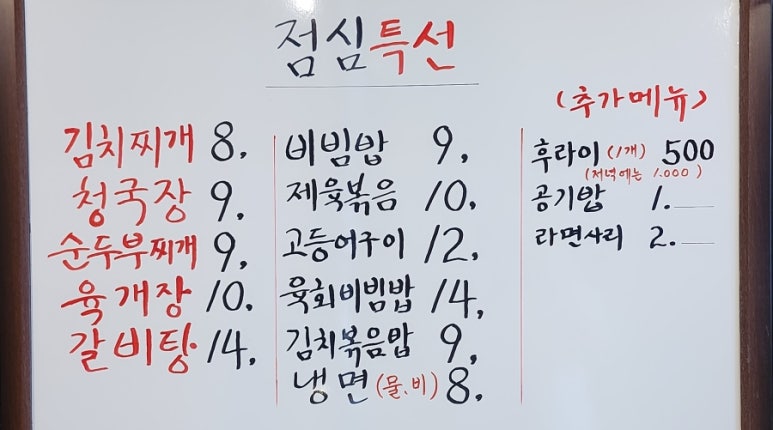 점심특선
김치찌개 8,
청국장 9.
순두부찌개 9,
육개장 10.
갈비탕 14.
비빔밥 9,
제육볶음 10,
고등어구이 12,
육회비빔밥 14,
김치볶음밥 9,
냉면(물.비) 8.
(추가메뉴)
후라이(1개) 500
(저녁에는 1.000)
공기밥 1.
라면사리 2.